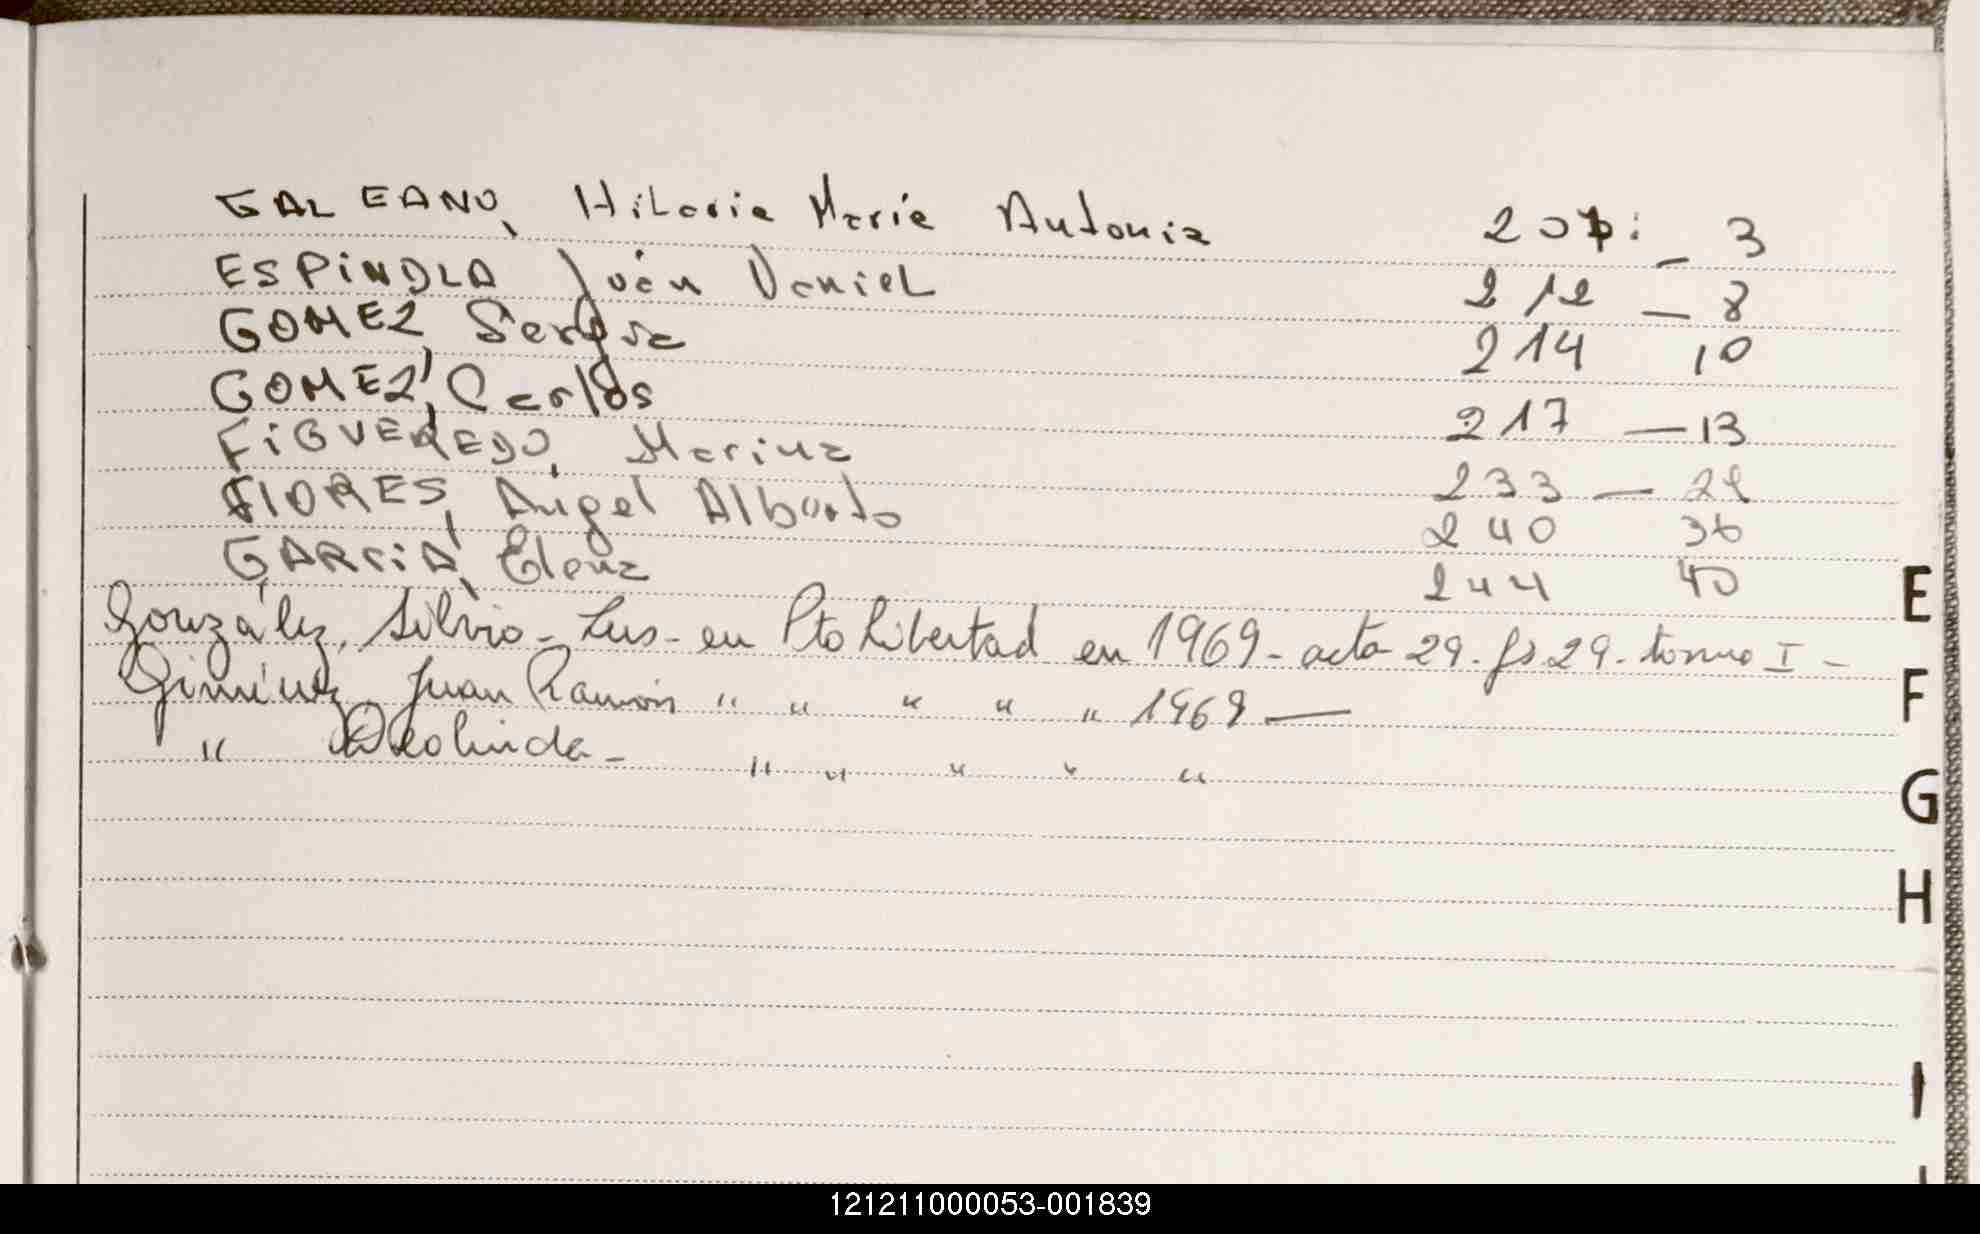 GALEANO, Hilaria Maria Antonia 207: - 3
ESPiNDLA Juan Daniel 212 - 8
GOMEZ, Sergia 214 10
GOMEZ, Carlos 217 - 13
FiGUEREDO, Marina 233 - 29
FlORES, Angel Alberto 240 36
GARCiA, Elena 244 40
González, Silvio - Lus - en Pto Libertad en 1969 - acta 29 - fs 29 - tomo I -
Giménez Juan Ramón " " " " " 1969 —
" Deolinda - " " " " "
E
F
G
H
I
121211000053-001839